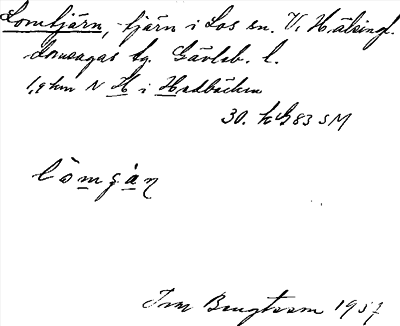 Lomtjärn, tjärn i Los sn. V. Hälsingl.
domsagas tg. Gävleb. l.
1,9 km N H i Hadbäcken
30. h G83 SM
lo᷈mɕàɳ
Ivar Bengtsson 1957